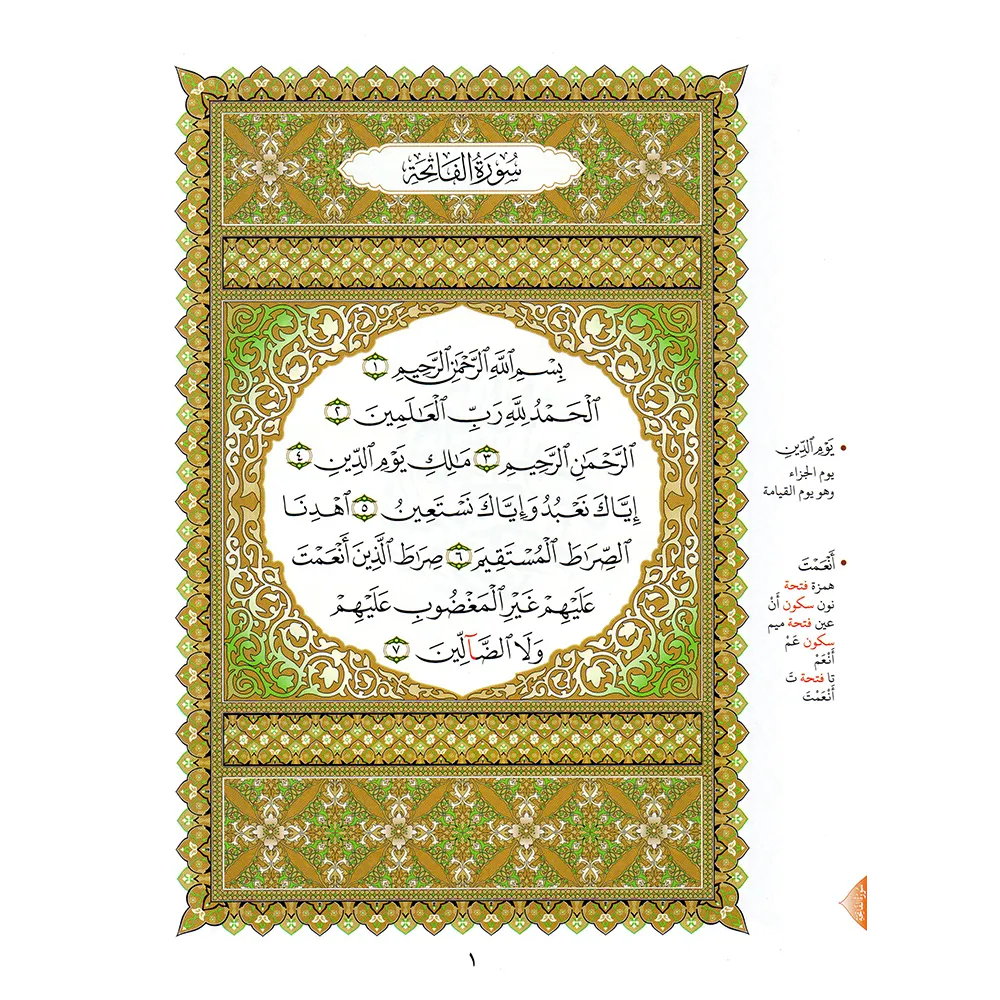 سُورَةُ الْفَاتِحَةِ
بِسْمِ ٱللَّهِ ٱلرَّحْمَٰنِ ٱلرَّحِيمِ ١
ٱلْحَمْدُ لِلَّهِ رَبِّ ٱلْعَٰلَمِينَ ٢
ٱلرَّحْمَٰنِ ٱلرَّحِيمِ ٣ مَٰلِكِ يَوْمِ ٱلدِّينِ ٤
إِيَّاكَ نَعْبُدُ وَإِيَّاكَ نَسْتَعِينُ ٥ ٱهْدِنَا
ٱلصِّرَٰطَ ٱلْمُسْتَقِيمَ ٦ صِرَٰطَ ٱلَّذِينَ أَنْعَمْتَ
عَلَيْهِمْ غَيْرِ ٱلْمَغْضُوبِ عَلَيْهِمْ
وَلَا ٱلضَّآلِّينَ ٧
• يَوْمِ ٱلدِّينِ
يوم الجزاء
وهو يوم القيامة
• أَنْعَمْتَ
همزة فتحة
نون سكون أَنْ
عين فتحة ميم
سكون عَمْ
أَنْعَمْ
تا فتحة تَ
أَنْعَمْتَ
سورة الفاتحة
١